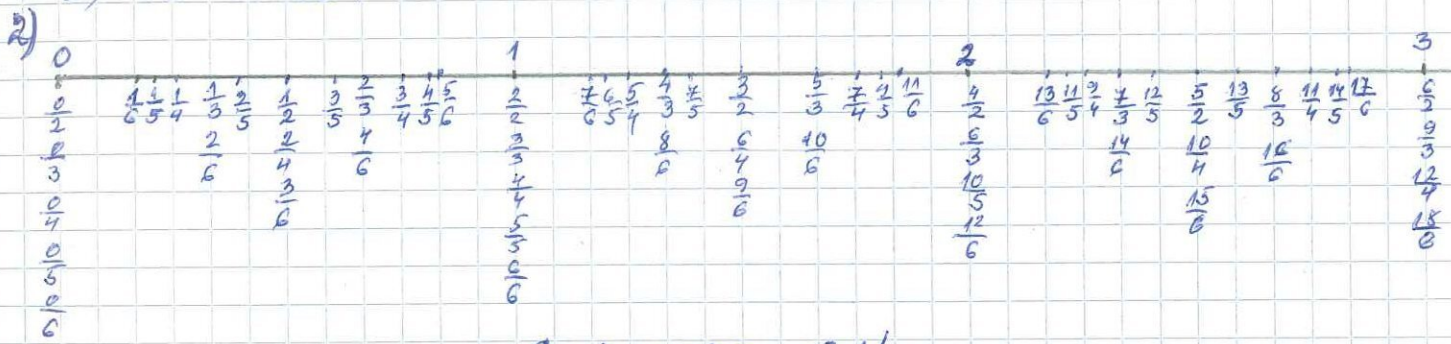 2)
0 1 2 3
0/2 1/6 1/5 1/4 1/3 2/5 1/2 3/5 2/3 3/4 4/5 5/6 2/2 7/6 6/5 5/4 4/3 7/5 3/2 5/3 7/4 9/5 11/6 4/2 13/6 11/5 9/4 7/3 12/5 5/2 13/5 8/3 11/4 14/5 17/6 6/2
0/3 2/6 2/4 4/6 3/3 8/6 6/4 10/6 6/3 14/6 10/4 16/6 9/3
0/4 3/6 4/4 9/6 10/5 15/6 12/4
0/5 5/5 12/6 18/6
0/6 6/6